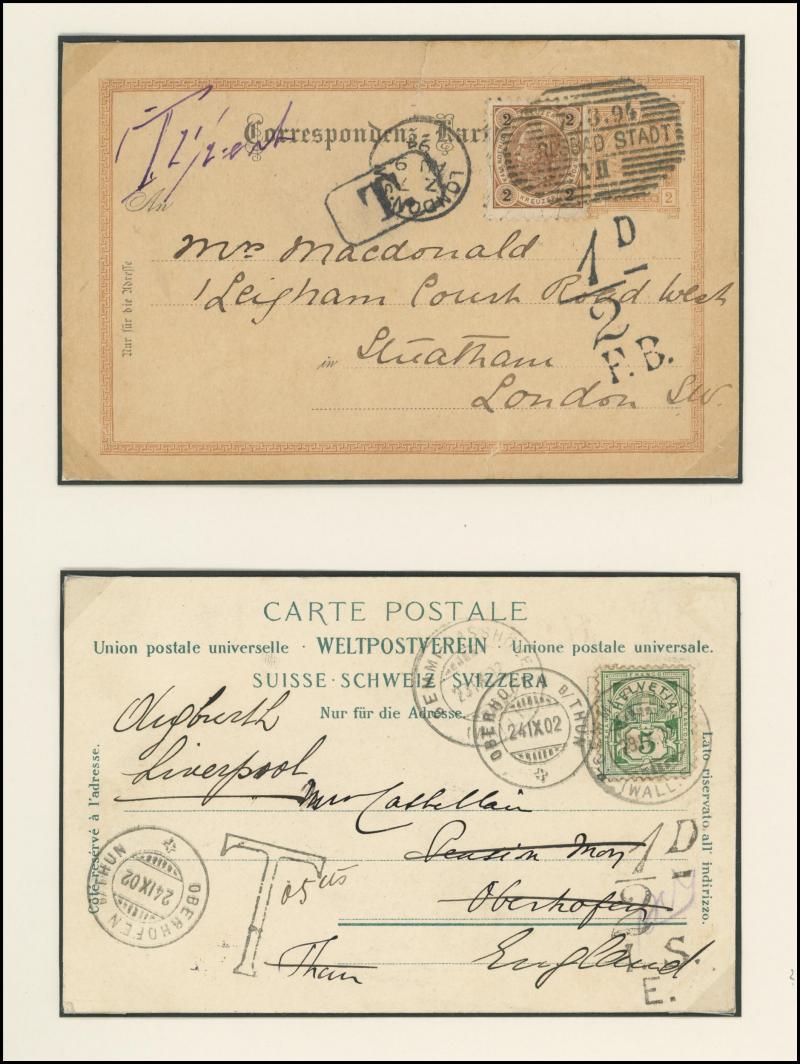 Correspondenz-Kart
2 2
KREUZER
2 2
3.94
BAD STADT
VII
2
LONDON
94
T
An
Mrs Macdonald
1 Leigham Court Road West
in Streatham
London SW.
Nur für die Adresse
1D/2
F.B.
CARTE POSTALE
Union postale universelle · WELTPOSTVEREIN · Unione postale universale.
SUISSE · SCHWEIZ · SVIZZERA
Nur für die Adresse.
OBERHOFEN B/THUN
24 IX 02
HELVETIA
5
(WALLIS)
Aigburth
Liverpool
Mrs Castellain
Pension Moy
Oberhofen
Thun
England
Côté réservé à l'adresse.
Lato riservato all' indirizzo.
OBERHOFEN B/THUN
24 IX 02
T
05 cts
1D
I.S.
E.